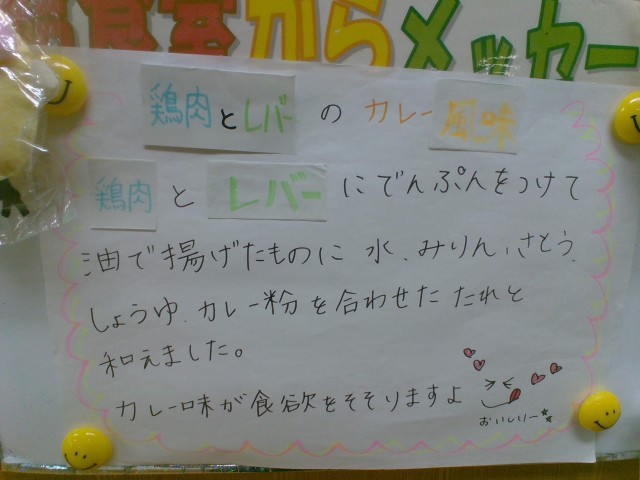 食室からメッセー
鶏肉とレバーのカレー風味
鶏肉とレバーにでんぷんをつけて
油で揚げたものに水、みりん、さとう、
しょうゆ、カレー粉を合わせたたれと
和えました。
カレー味が食欲をそそりますよ
おいしいー☆